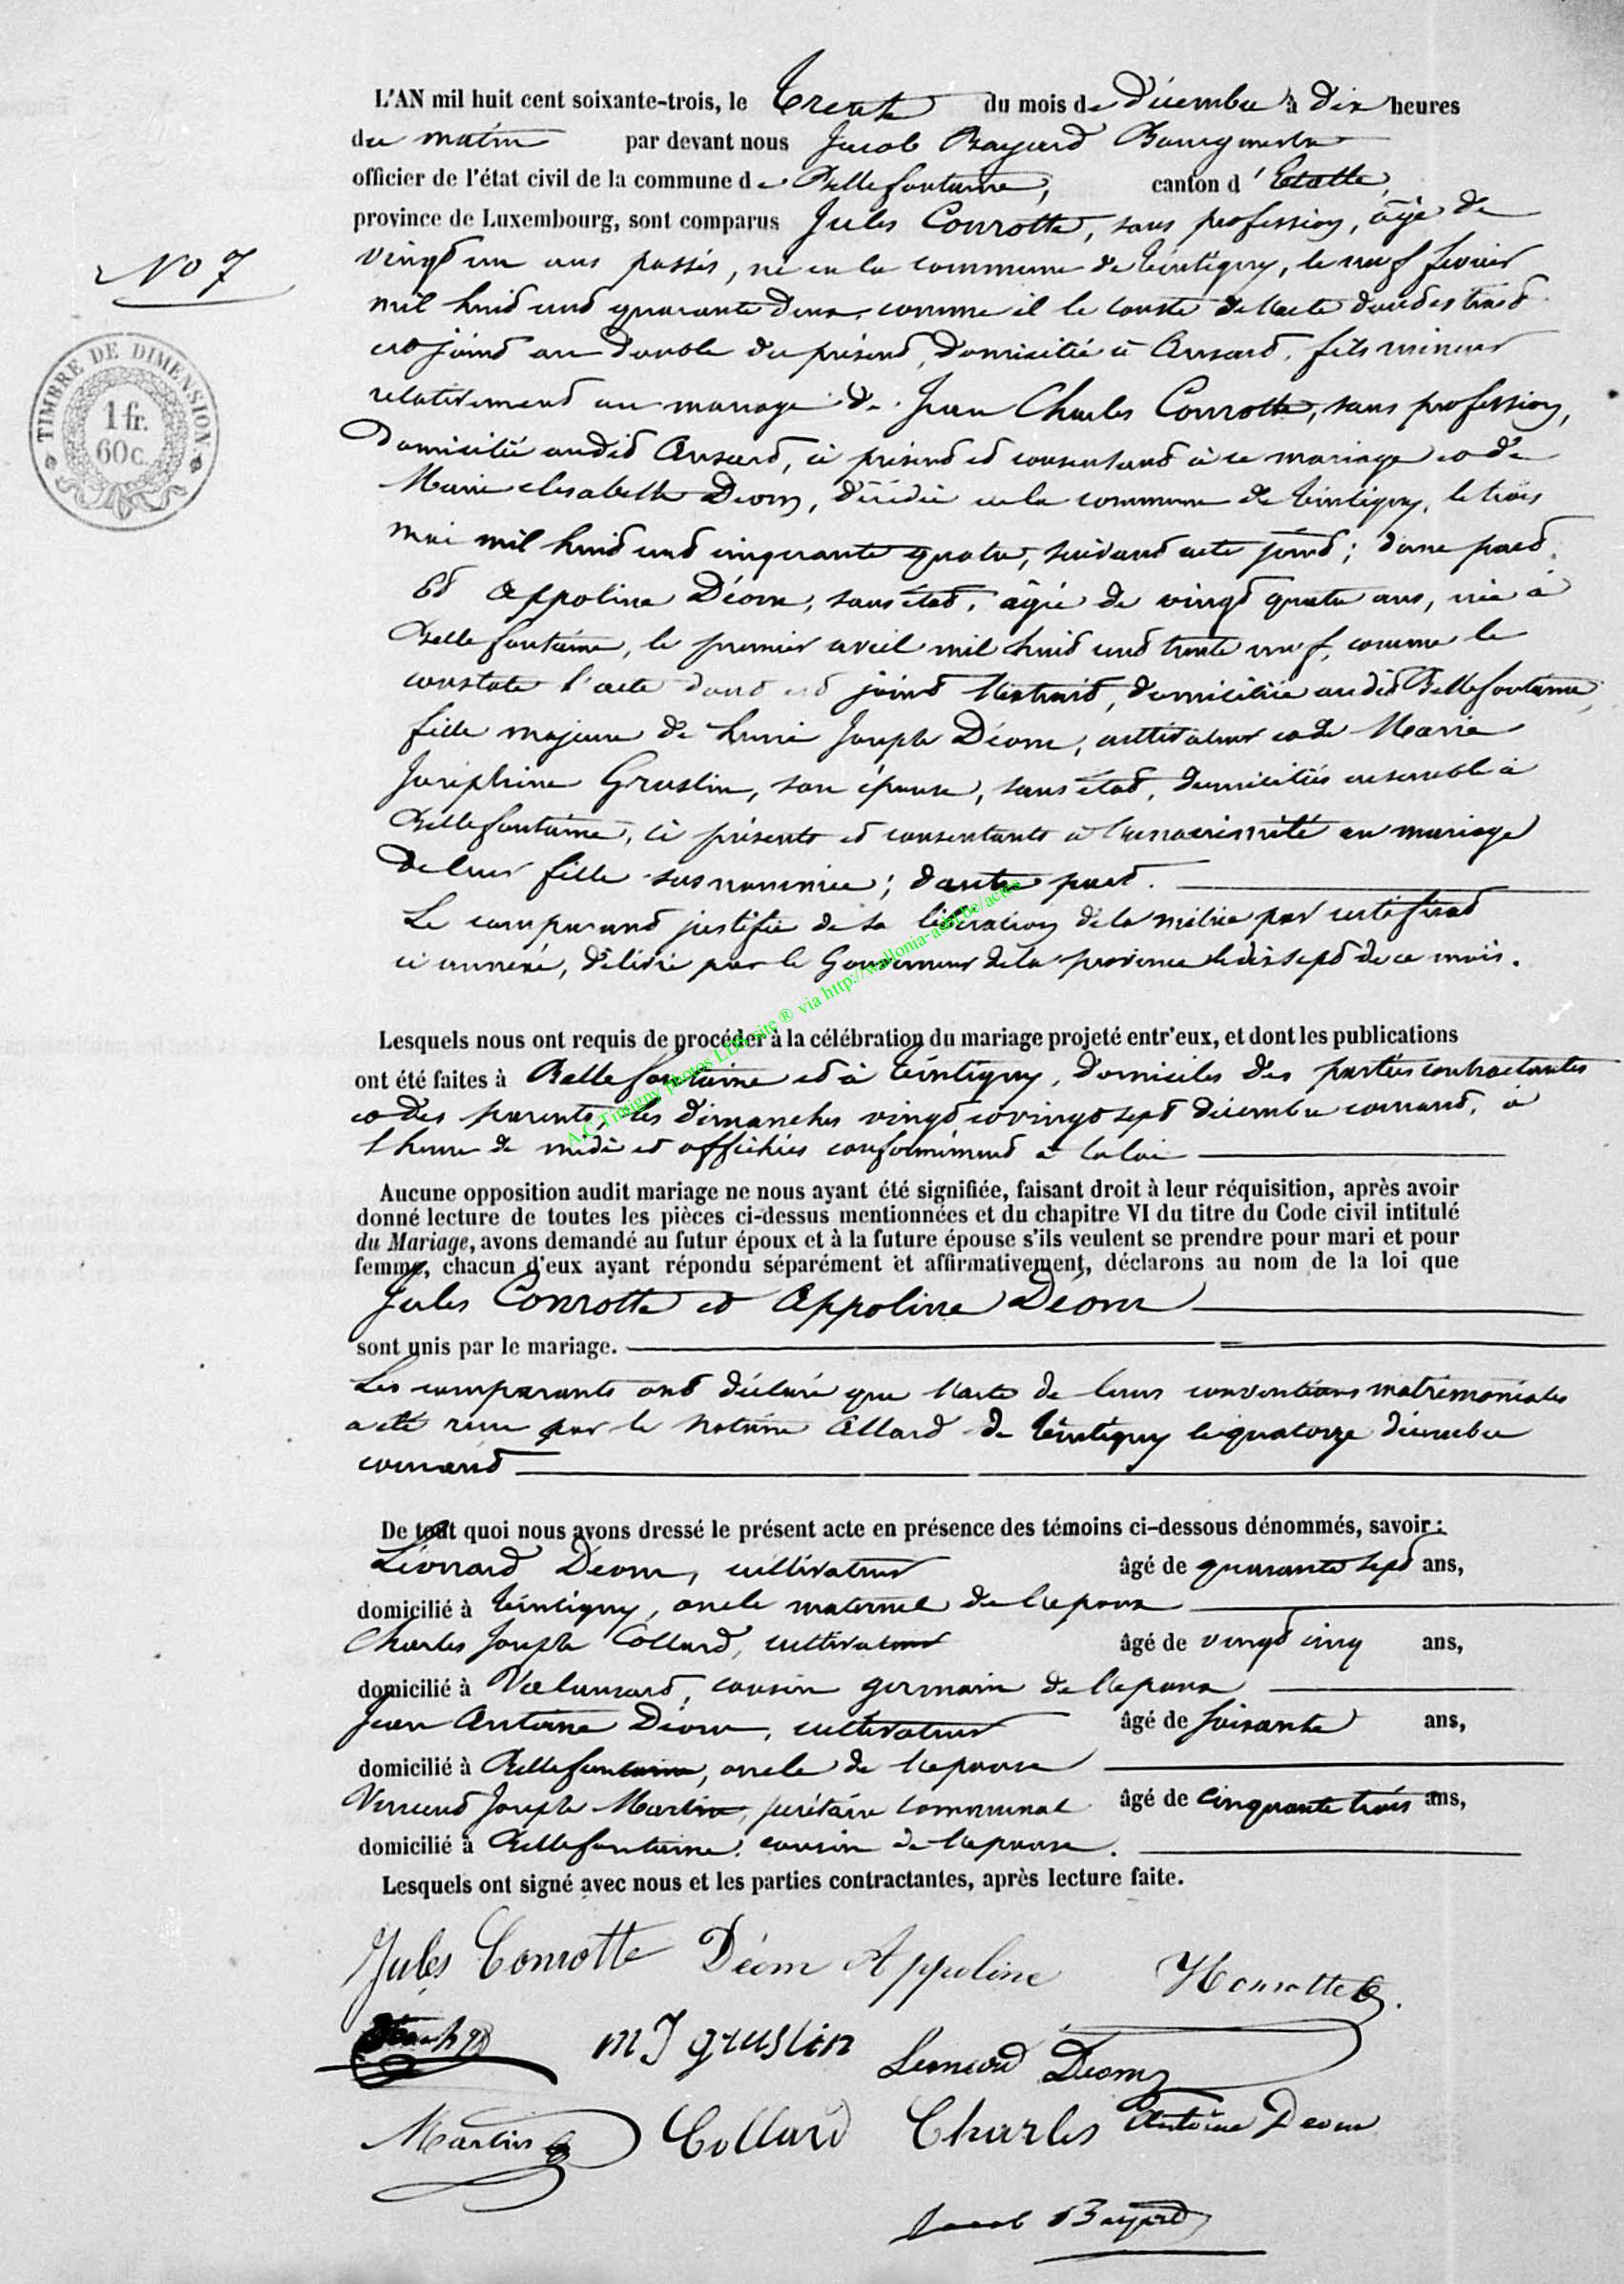 L'AN mil huit cent soixante-trois, le Trente du mois de décembre à dix heures
du matin par devant nous Jacob Bayard Bourgmestre
officier de l'état civil de la commune de Bellefontaine, canton d'Etalle,
province de Luxembourg, sont comparus Jules Conrotte, sans profession, âgé de
No 7
vingt un ans passés, né en la commune de Tintigny, le neuf février
mil huit cent quarante deux, comme il le conste de l'acte dont extrait
est joint au double du présent, domicilié à Ansart, fils mineur
relativement au mariage de Jean Charles Conrotte, sans profession,
TIMBRE DE DIMENSION
1 fr.
60c.
domicilié audit Ansart, ci présent et consentant à ce mariage et de
Marie Elisabeth Deom, décédée en la commune de Tintigny, le trois
mai mil huit cent cinquante quatre, suivant acte joint; d'une part.
Et Appoline Déom, sans état, âgée de vingt quatre ans, née à
Bellefontaine, le premier avril mil huit cent trente neuf, comme le
constate l'acte dont est joint l'extrait, domiciliée audit Bellefontaine,
fille majeure de Joseph Déom, cultivateur et de Marie
Joséphine Gruslin, son épouse, sans état, domiciliés ensemble à
Bellefontaine, ci présents et consentants au mariage
de leur fille susnommée; d'autre part.
Le comparant justifie de sa libération de la milice par certificat
ci annexé, délivré par le Gouverneur de la province le dix sept de ce mois.
A.C Tintigny photos LDB site ® via http://wallonia-asbl.be/actes
Lesquels nous ont requis de procéder à la célébration du mariage projeté entr'eux, et dont les publications
ont été faites à Bellefontaine et à Tintigny, domiciles des parties contractantes
et des parents, les dimanches vingt et vingt sept décembre courant, à
l'heure de midi et affichées conformément à la loi
Aucune opposition audit mariage ne nous ayant été signifiée, faisant droit à leur réquisition, après avoir
donné lecture de toutes les pièces ci-dessus mentionnées et du chapitre VI du titre du Code civil intitulé
du Mariage, avons demandé au futur époux et à la future épouse s'ils veulent se prendre pour mari et pour
femme, chacun d'eux ayant répondu séparément et affirmativement, déclarons au nom de la loi que
Jules Conrotte et Appoline Déom
sont unis par le mariage.
Les comparants ont déclaré que l'acte de leurs conventions matrimoniales
a été reçu par le Notaire Allard de Tintigny le quatorze décembre
courant
De tout quoi nous avons dressé le présent acte en présence des témoins ci-dessous dénommés, savoir :
Léonard Deom, cultivateur âgé de quarante sept ans,
domicilié à Tintigny, oncle maternel de l'époux
Charles Joseph Collard, cultivateur âgé de vingt cinq ans,
domicilié à Valansart, cousin germain de l'époux
Jean Antoine Déom, cultivateur âgé de soixante ans,
domicilié à Bellefontaine, oncle de l'épouse
Joseph Martin, secrétaire communal âgé de cinquante trois ans,
domicilié à Bellefontaine, cousin de l'épouse.
Lesquels ont signé avec nous et les parties contractantes, après lecture faite.
Jules Conrotte Déom Appoline
MJ gruslin Leonard Deom
Martin Collard Charles Antoine Deom
Jacob Bayard